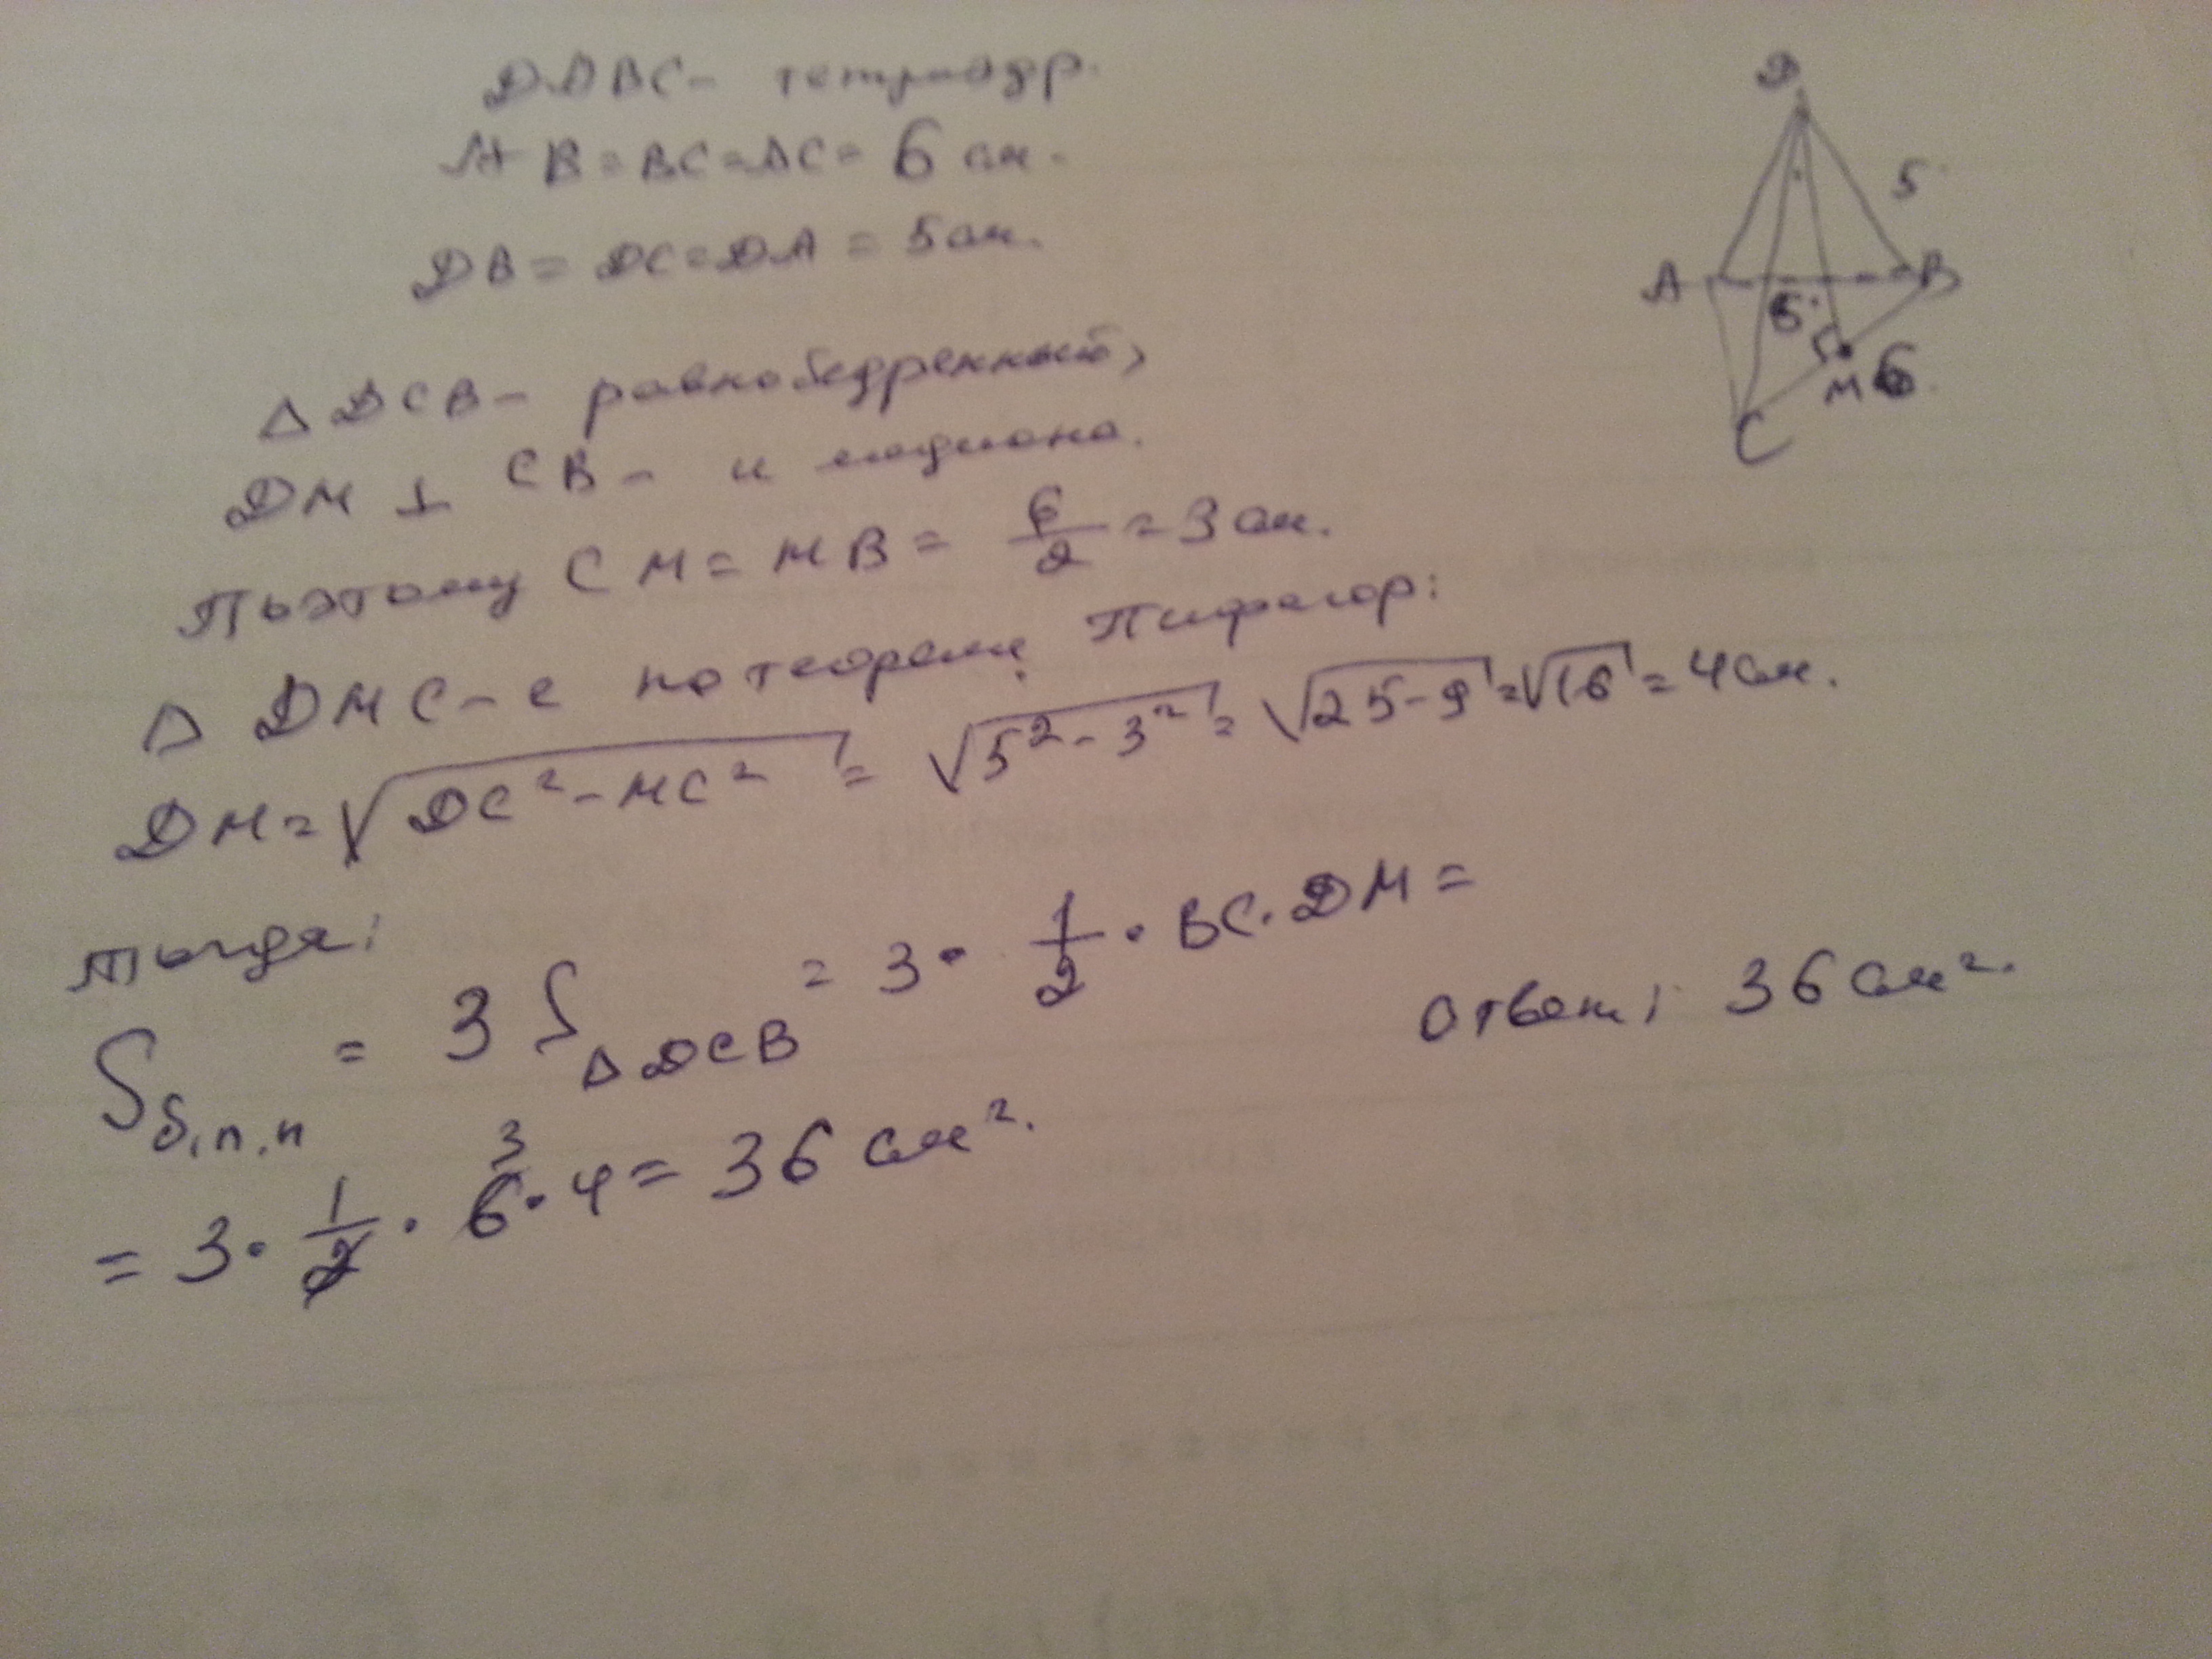 DABC- тетраэдр.
AB=BC=AC=6 см.
DB=DC=DA=5 см.
Δ DCB- равнобедренный,
DM ⊥ CB- и медиана.
Поэтому CM=MB=6/2=3 см.
Δ DMC-е по теореме Пифагор:
DM=√(DC²-MC²)=√(5²-3²)=√(25-9)=√16=4 см.
тогда:
S б.п.п = 3 S ΔDCB = 3·1/2·BC·DM=
=3·1/2·6·4=36 см².
3
Ответ: 36 см².
D
5
A
B
6
M 6
C